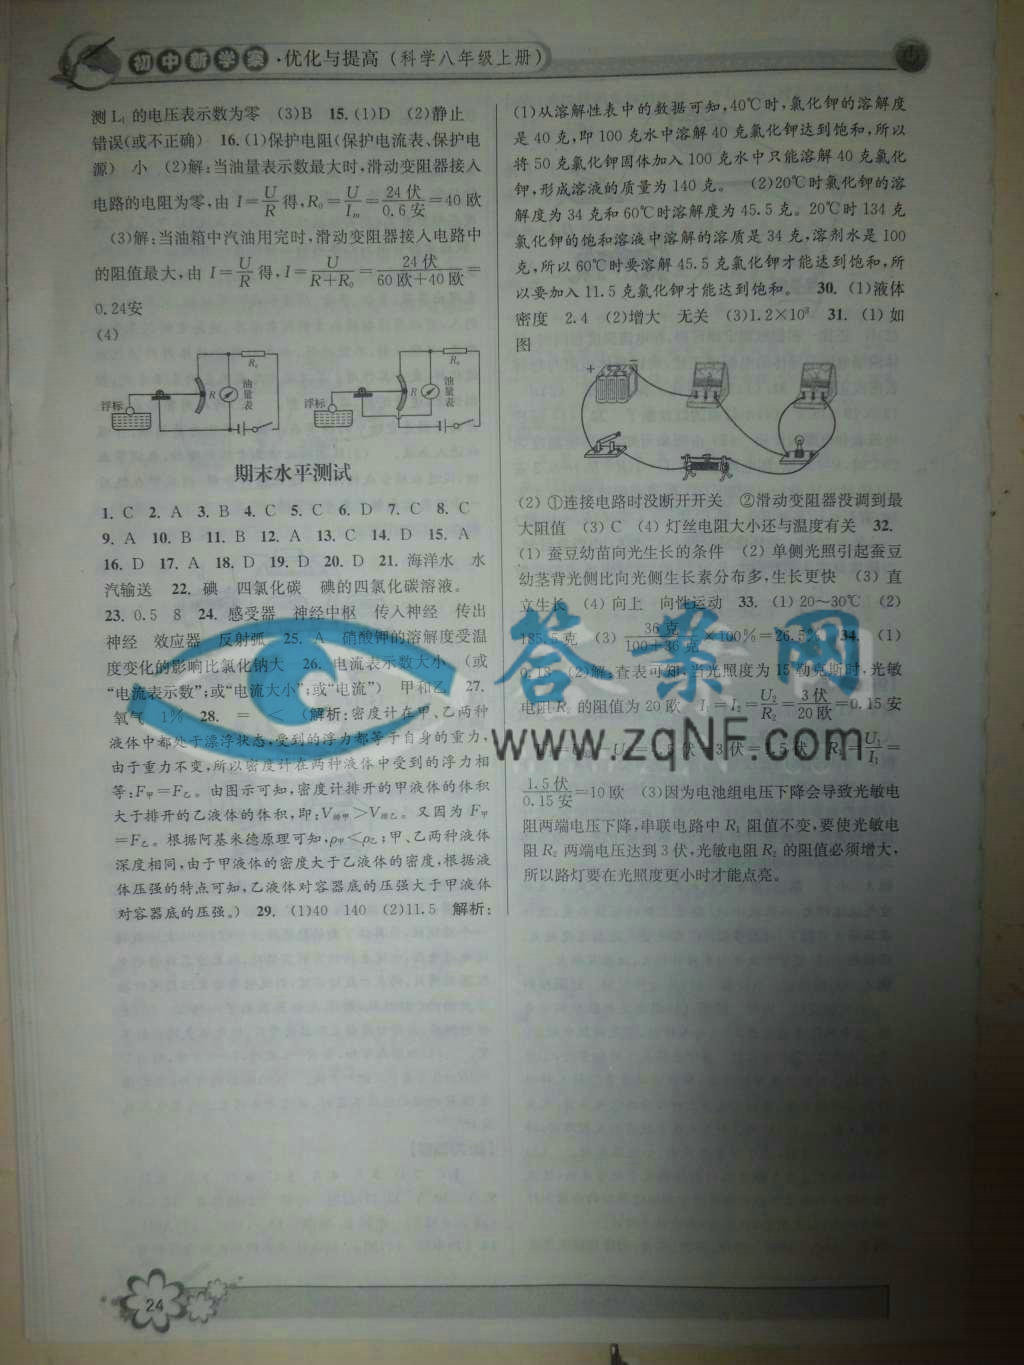 初中新学案·优化与提高(科学八年级上册)
测 L₁ 的电压表示数为零 (3)B 15. (1)D (2)静止
错误(或不正确) 16. (1)保护电阻(保护电流表、保护电
源) 小 (2)解:当油量表示数最大时,滑动变阻器接入
电路的电阻为零,由 I=U/R 得,R₀=U/Iₘ=24 伏/0.6 安=40 欧
(3)解:当油箱中汽油用完时,滑动变阻器接入电路中
的阻值最大,由 I=U/R 得,I=U/(R+R₀)=24 伏/(60 欧+40 欧)=
0.24安
(4)
R₀ R 油量表 浮标
R₀ R 油量表 浮标
期末水平测试
1. C 2. A 3. B 4. C 5. C 6. D 7. C 8. C
9. A 10. B 11. B 12. A 13. C 14. D 15. A
16. D 17. A 18. D 19. D 20. D 21. 海洋水 水
汽输送 22. 碘 四氯化碳 碘的四氯化碳溶液。
23. 0.5 8 24. 感受器 神经中枢 传入神经 传出
神经 效应器 反射弧 25. A 硝酸钾的溶解度受温
度变化的影响比氯化钠大 26. 电流表示数大小 (或
“电流表示数”;或“电流大小”;或“电流”) 甲和乙 27.
氧气 1% 28. = < (解析:密度计在甲、乙两种
液体中都处于漂浮状态,受到的浮力都等于自身的重力,
由于重力不变,所以密度计在两种液体中受到的浮力相
等:F甲=F乙。由图示可知,密度计排开的甲液体的体积
大于排开的乙液体的体积,即:V排甲>V排乙。又因为 F甲
=F乙。根据阿基米德原理可知,ρ甲<ρ乙;甲、乙两种液体
深度相同,由于甲液体的密度大于乙液体的密度,根据液
体压强的特点可知,乙液体对容器底的压强大于甲液体
对容器底的压强。) 29. (1)40 140 (2)11.5 解析:
(1)从溶解性表中的数据可知,40℃时,氯化钾的溶解度
是 40 克,即 100 克水中溶解 40 克氯化钾达到饱和,所以
将 50 克氯化钾固体加入 100 克水中只能溶解 40 克氯化
钾,形成溶液的质量为 140 克。 (2)20℃时氯化钾的溶
解度为 34 克和 60℃时溶解度为 45.5 克。20℃时 134 克
氯化钾的饱和溶液中溶解的溶质是 34 克,溶剂水是 100
克,所以 60℃时要溶解 45.5 克氯化钾才能达到饱和,所
以要加入 11.5 克氯化钾才能达到饱和。 30. (1)液体
密度 2.4 (2)增大 无关 (3)1.2×10³ 31. (1)如
图
+ −
(2) ①连接电路时没断开开关 ②滑动变阻器没调到最
大阻值 (3) C (4) 灯丝电阻大小还与温度有关 32.
(1) 蚕豆幼苗向光生长的条件 (2) 单侧光照引起蚕豆
幼茎背光侧比向光侧生长素分布多,生长更快 (3) 直
立生长 (4) 向上 向性运动 33. (1) 20~30℃ (2)
185.5克 (3) 36 克/(100+36 克)×100%=26.5% 34. (1)
0.13 (2)解:查表可知,当光照度为 15 勒克斯时,光敏
电阻 R₂ 的阻值为 20 欧 I₁=I₂=U₂/R₂=3 伏/20 欧=0.15 安
R₁=U₁/I₁=
1.5 伏/0.15 安=10 欧 (3)因为电池组电压下降会导致光敏电
阻两端电压下降,串联电路中 R₁ 阻值不变,要使光敏电
阻 R₂ 两端电压达到 3 伏,光敏电阻 R₂ 的阻值必须增大,
所以路灯要在光照度更小时才能点亮。
答案网
www.zqNF.com
24